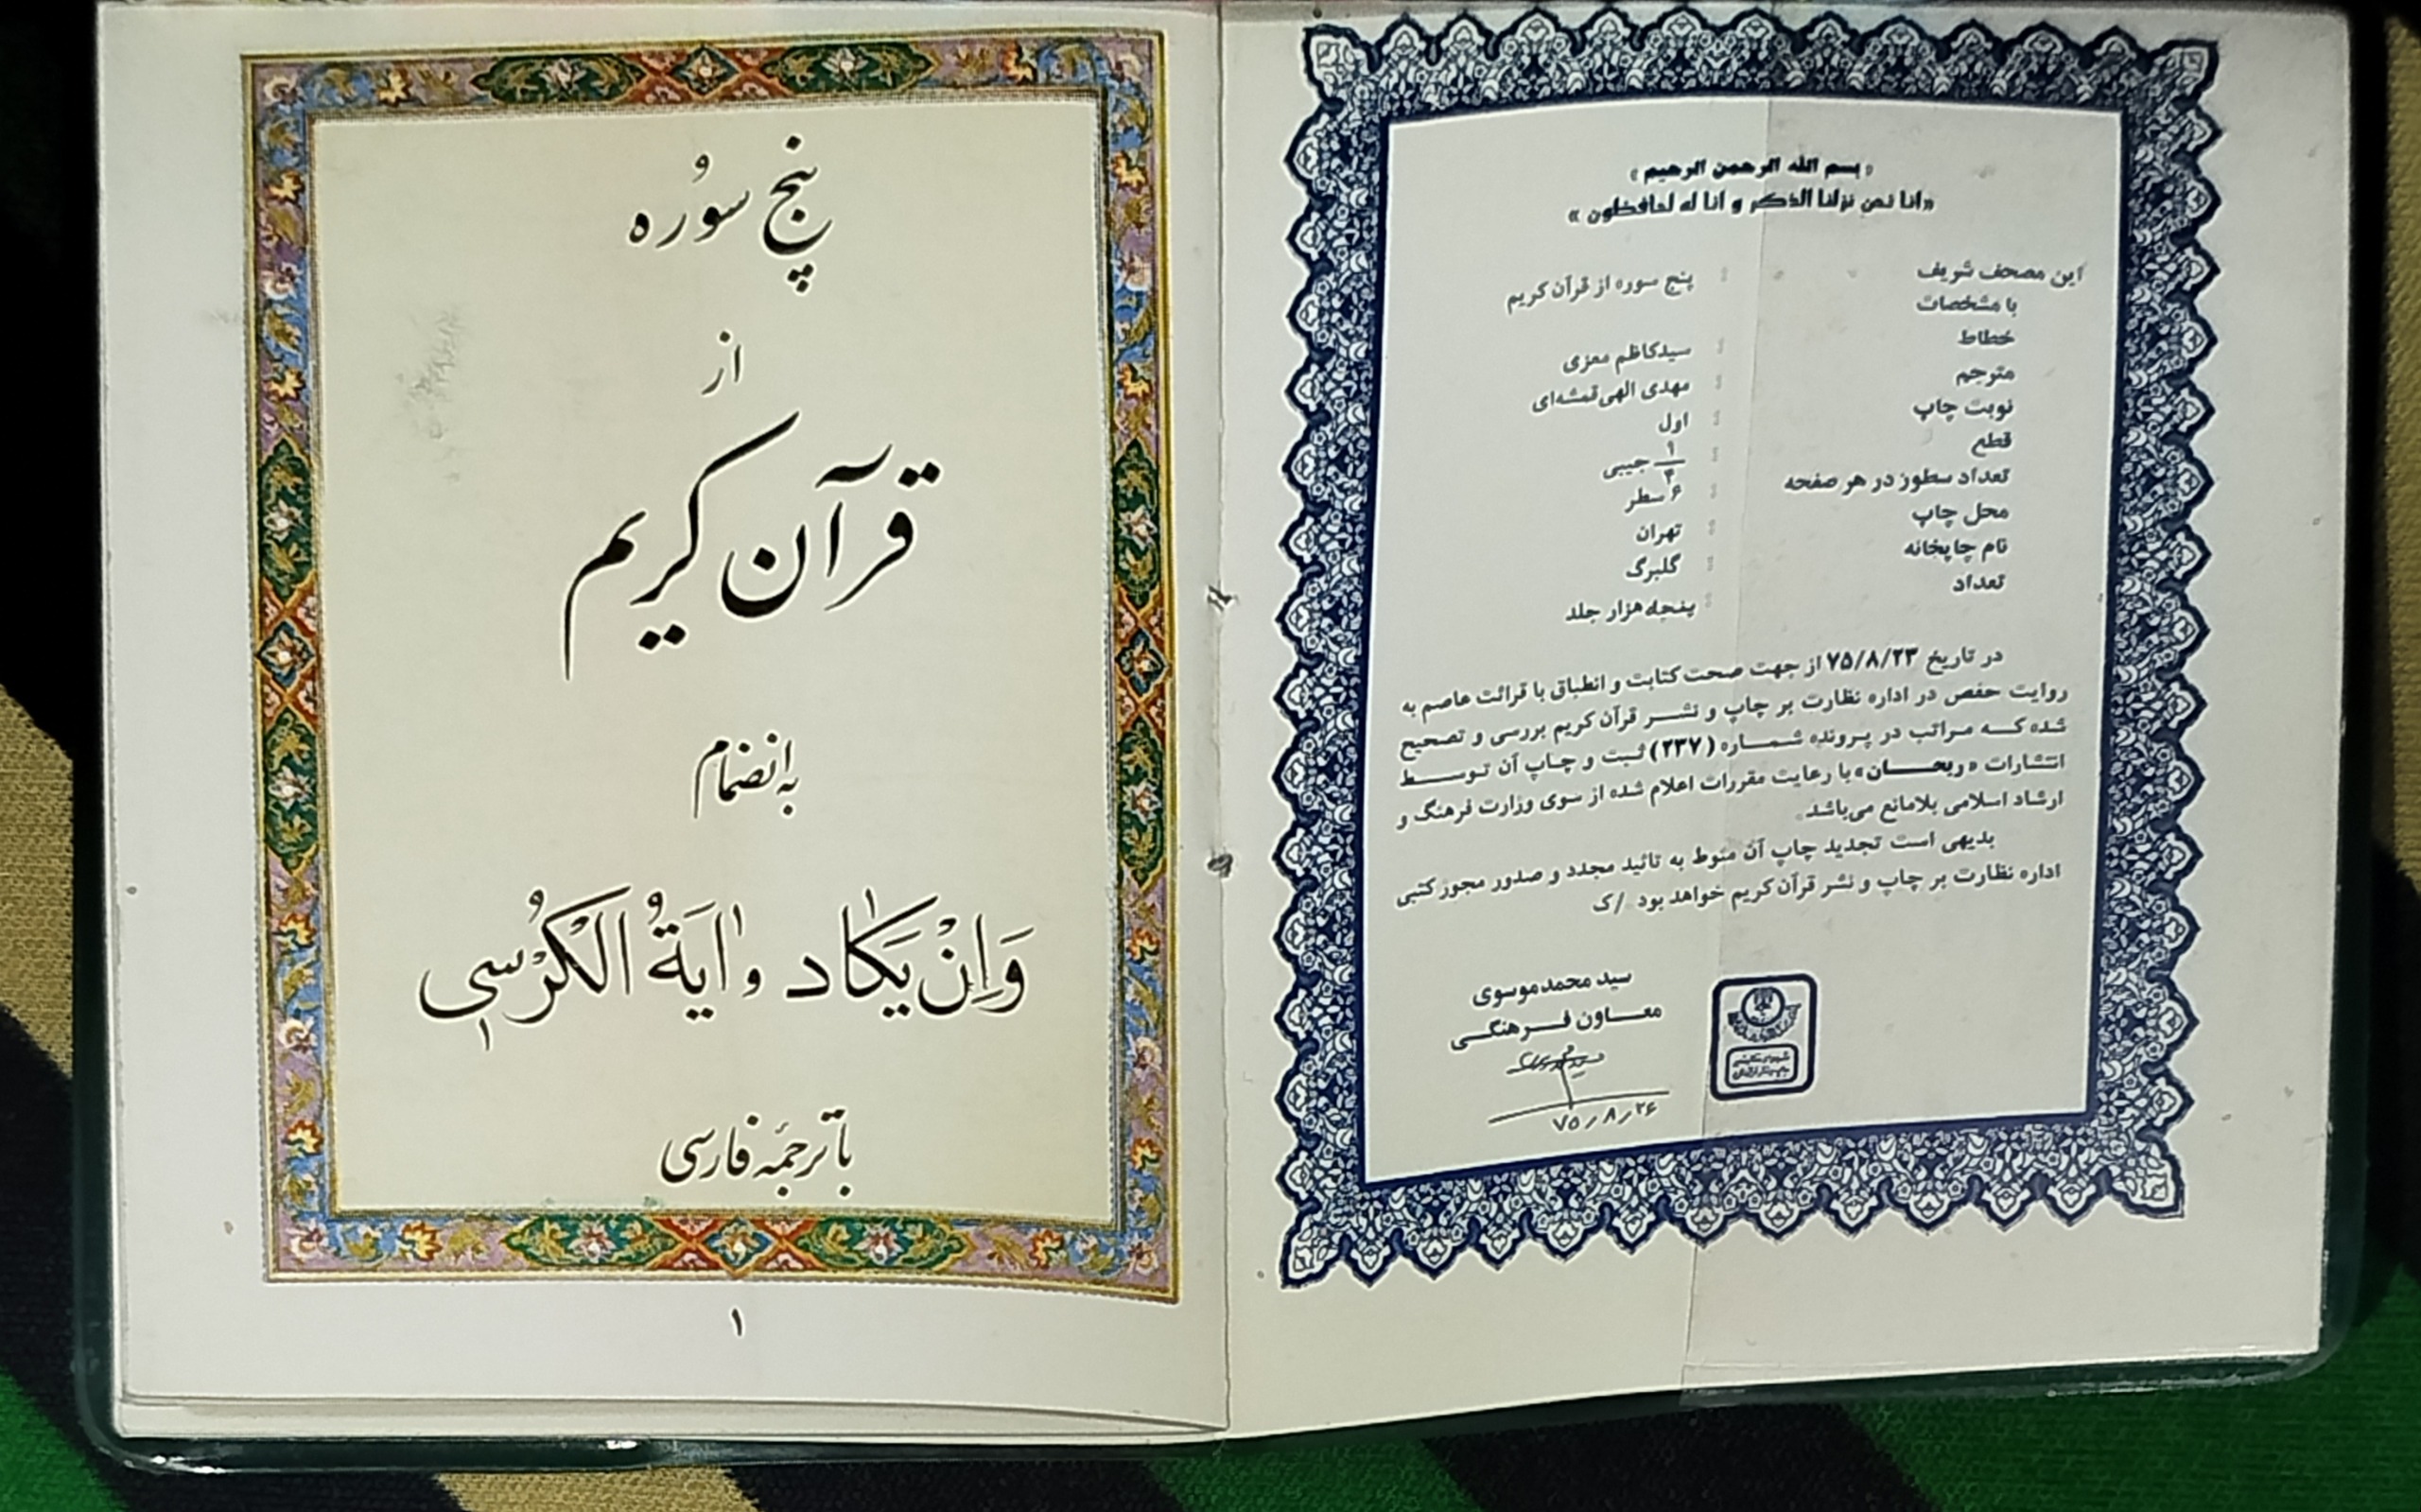 « بسم الله الرحمن الرحیم »
«انا نحن نزلنا الذکر و انا له لحافظون »
این مصحف شریف : پنج سوره از قرآن کریم
با مشخصات
خطاط : سیدکاظم معزی
مترجم : مهدی الهی قمشه‌ای
نوبت چاپ : اول
قطع : ۱/۴ جیبی
تعداد سطور در هر صفحه : ۶ سطر
محل چاپ : تهران
نام چاپخانه : گلبرگ
تعداد : پنجاه هزار جلد
در تاریخ ۷۵/۸/۲۳ از جهت صحت کتابت و انطباق با قرائت عاصم به
روایت حفص در اداره نظارت بر چاپ و نشر قرآن کریم بررسی و تصحیح
شده که مراتب در پرونده شماره (۲۳۷) ثبت و چاپ آن توسط
انتشارات «ریحان» با رعایت مقررات اعلام شده از سوی وزارت فرهنگ و
ارشاد اسلامی بلامانع می‌باشد.
بدیهی است تجدید چاپ آن منوط به تائید مجدد و صدور مجوز کتبی
اداره نظارت بر چاپ و نشر قرآن کریم خواهد بود /ک
سید محمد موسوی
معاون فرهنگی
۷۵/۸/۲۶
پنج سوُره
از
قرآن کریم
به انضمام
وَاِنْ یَکٰاد و اٰیَةُ الْکُرْسی
با ترجمهٔ فارسی
۱